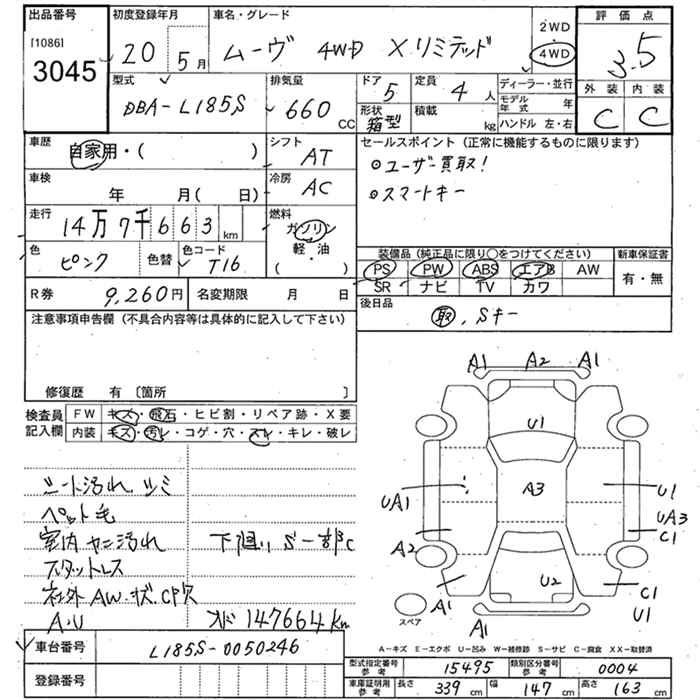 出品番号 初度登録年月 車名・グレード 評価点
[1086]
3045
20 5月 ムーヴ 4WD Xリミテッド
2WD
4WD
3.5
型式 排気量 ドア 定員 ディーラー・並行 外装 内装
DBA-L185S 660 CC 5 4人
モデル年式 年
形状 箱型 積載 kg ハンドル 左・右 C C
車歴 自家用・( ) シフト AT
セールスポイント (正常に機能するものに限ります)
◎ユーザー買取!
◎スマートキー
車検 年 月( 日) 冷房 AC
走行 14万7千663km 燃料 ガソリン
軽・油
・( )
色 ピンク 色替 色コード T16
装備品(純正品に限り◯をつけてください) 新車保証書
PS PW ABS エアB AW 有・無
SR ナビ TV カワ
R券 9,260円 名変期限 月 日
後日品
取, Sキー
注意事項申告欄(不具合内容等は具体的に記入して下さい)
修復歴 有 〔箇所 〕
検査員記入欄
FW キズ・飛石・ヒビ割・リペア跡・X要
内装 キズ・汚レ・コゲ・穴・スレ・キレ・破レ
シート汚れ、シミ
ペット毛
室内ヤニ汚れ 下廻りS一部C
スタットレス
社外AW.状.CP欠
A.U 〆147664km
A1 A2 A1
U1
A3
UA1 U1
UA3
C1
A2
U2
A1 C1
U1
A1
スペア
A-キズ E-エクボ U-凹み W-補修跡 S-サビ C-腐食 XX-取替済
車台番号 L185S-0050246
登録番号
型式指定番号参考 15495 類別区分番号参考 0004
車庫証明用参考 長さ 339cm 幅 147cm 高さ 163cm